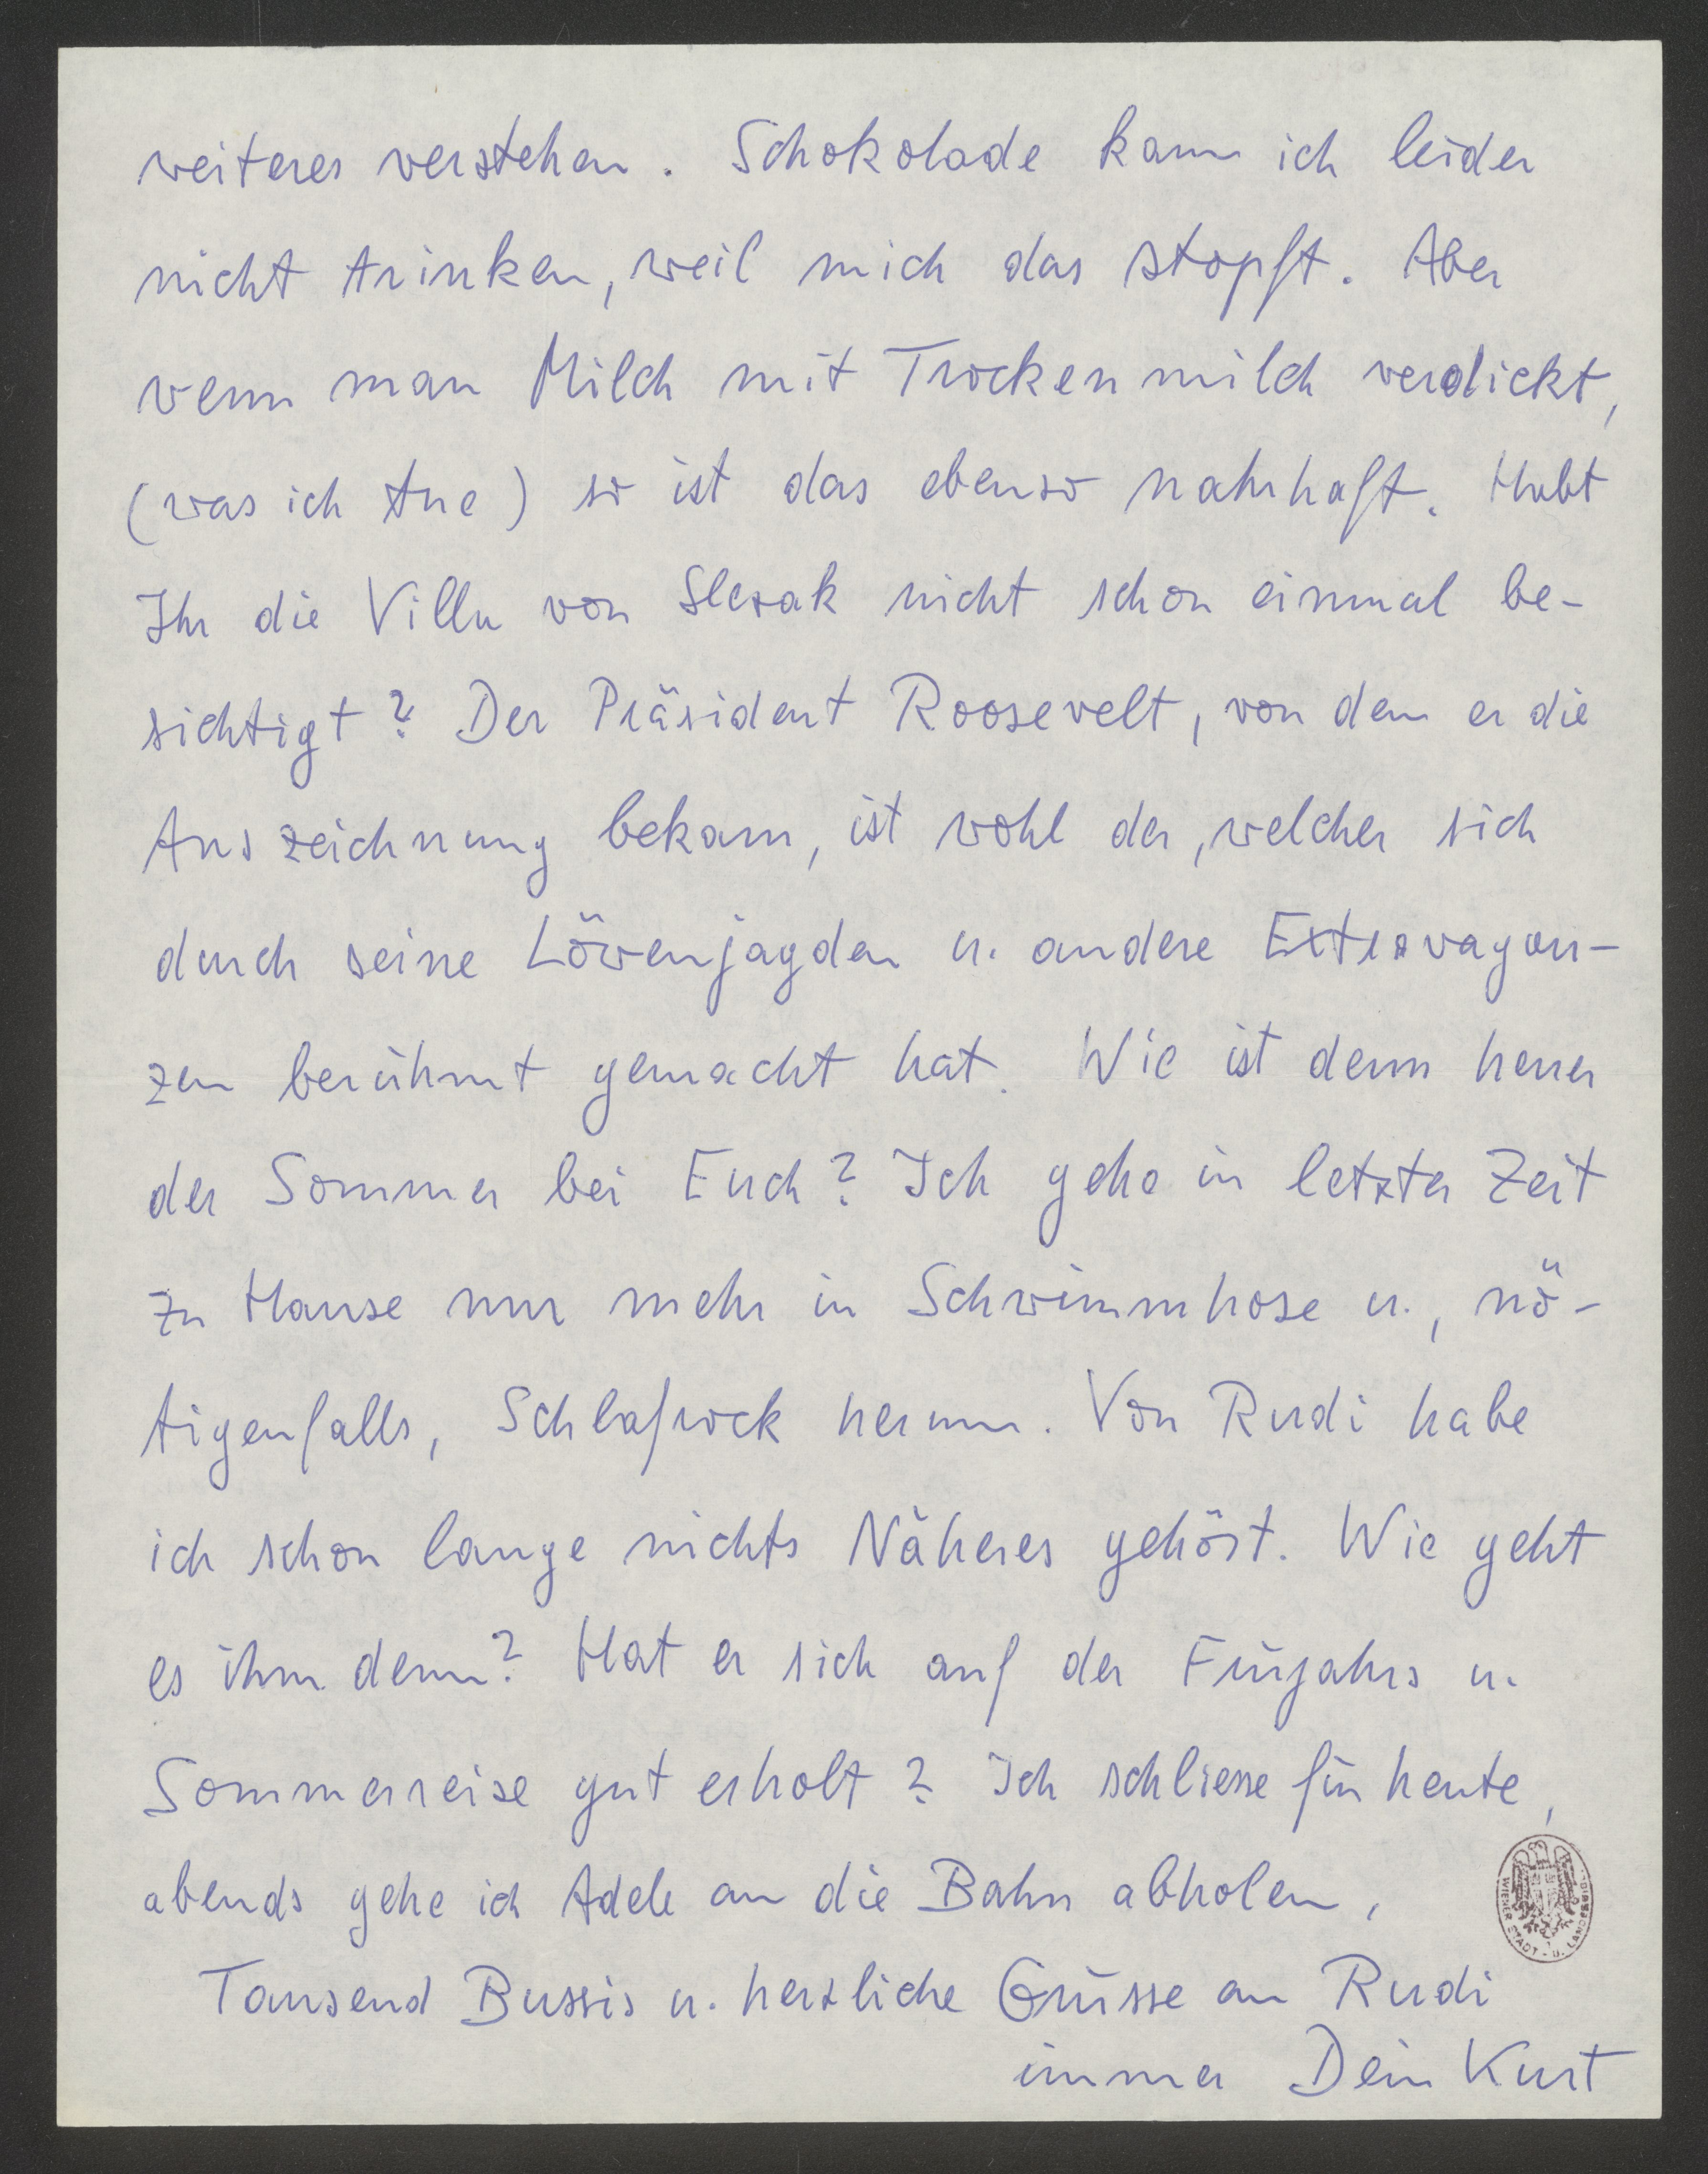 weiteres verstehen. Schokolade kann ich leider
nicht trinken, weil mich das stopft. Aber
wenn man Milch mit Trockenmilch verdickt,
(was ich tue) so ist das ebenso nahrhaft. Habt
Ihr die Villa von Slezak nicht schon einmal be-
sichtigt? Der Präsident Roosevelt, von dem er die
Auszeichnung bekam, ist wohl der, welcher sich
durch seine Löwenjagden u. andere Extravagan-
zen berühmt gemacht hat. Wie ist denn heuer
der Sommer bei Euch? Ich gehe in letzter Zeit
zu Hause nur mehr in Schwimmhose u., nö-
tigenfalls, Schlafrock herum. Von Rudi habe
ich schon lange nichts Näheres gehört. Wie geht
es ihm denn? Hat er sich auf der Früjahrs u.
Sommerreise gut erholt? Ich schliesse für heute,
abends gehe ich Adele an die Bahn abholen,
Tausend Bussis u. herzliche Grüsse an Rudi
immer Dein Kurt
WIENER STADT- U. LANDESBIBL.